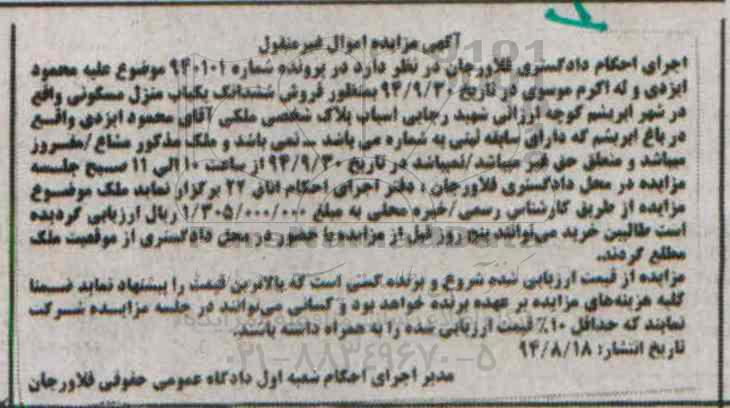 آگهی مزایده اموال غیرمنقول
اجرای احکام دادگستری فلاورجان در نظر دارد در پرونده شماره ۹۴۰۱۰۱ موضوع علیه محمود
ایزدی و له اکرم موسوی در تاریخ ۹۴/۹/۳۰ بمنظور فروش ششدانگ یکباب منزل مسکونی واقع
در شهر ابریشم کوچه ارزانی شهید رجایی اسباب پلاک شخصی ملکی آقای محمود ایزدی واقع
در باغ ابریشم که دارای سابقه ثبتی به شماره می باشد ــ نمی باشد و ملک مذکور مشاع /مفروز
میباشد و متعلق حق غیر میباشد /نمیباشد در تاریخ ۹۴/۹/۳۰ از ساعت ۱۰ الی ۱۱ صبح جلسه
مزایده در محل دادگستری فلاورجان ، دفتر اجرای احکام اتاق ۲۲ برگزار نماید ملک موضوع
مزایده از طریق کارشناس رسمی /خبره محلی به مبلغ ۱/۳۰۵/۰۰۰/۰۰۰ ریال ارزیابی گردیده
است طالبین خرید می‌توانند پنج روز قبل از مزایده با حضور در محل دادگستری از موقعیت ملک
مطلع گردند.
مزایده از قیمت ارزیابی شده شروع و برنده کسی است که بالاترین قیمت را پیشنهاد نماید ضمنا
کلیه هزینه‌های مزایده بر عهده برنده خواهد بود و کسانی می‌توانند در جلسه مزایده شرکت
نمایند که حداقل ۱۰٪ قیمت ارزیابی شده را به همراه داشته باشند.
تاریخ انتشار: ۹۴/۸/۱۸
۰۲۱-۸۸۳۴۹۶۷۰-۵
مدیر اجرای احکام شعبه اول دادگاه عمومی حقوقی فلاورجان